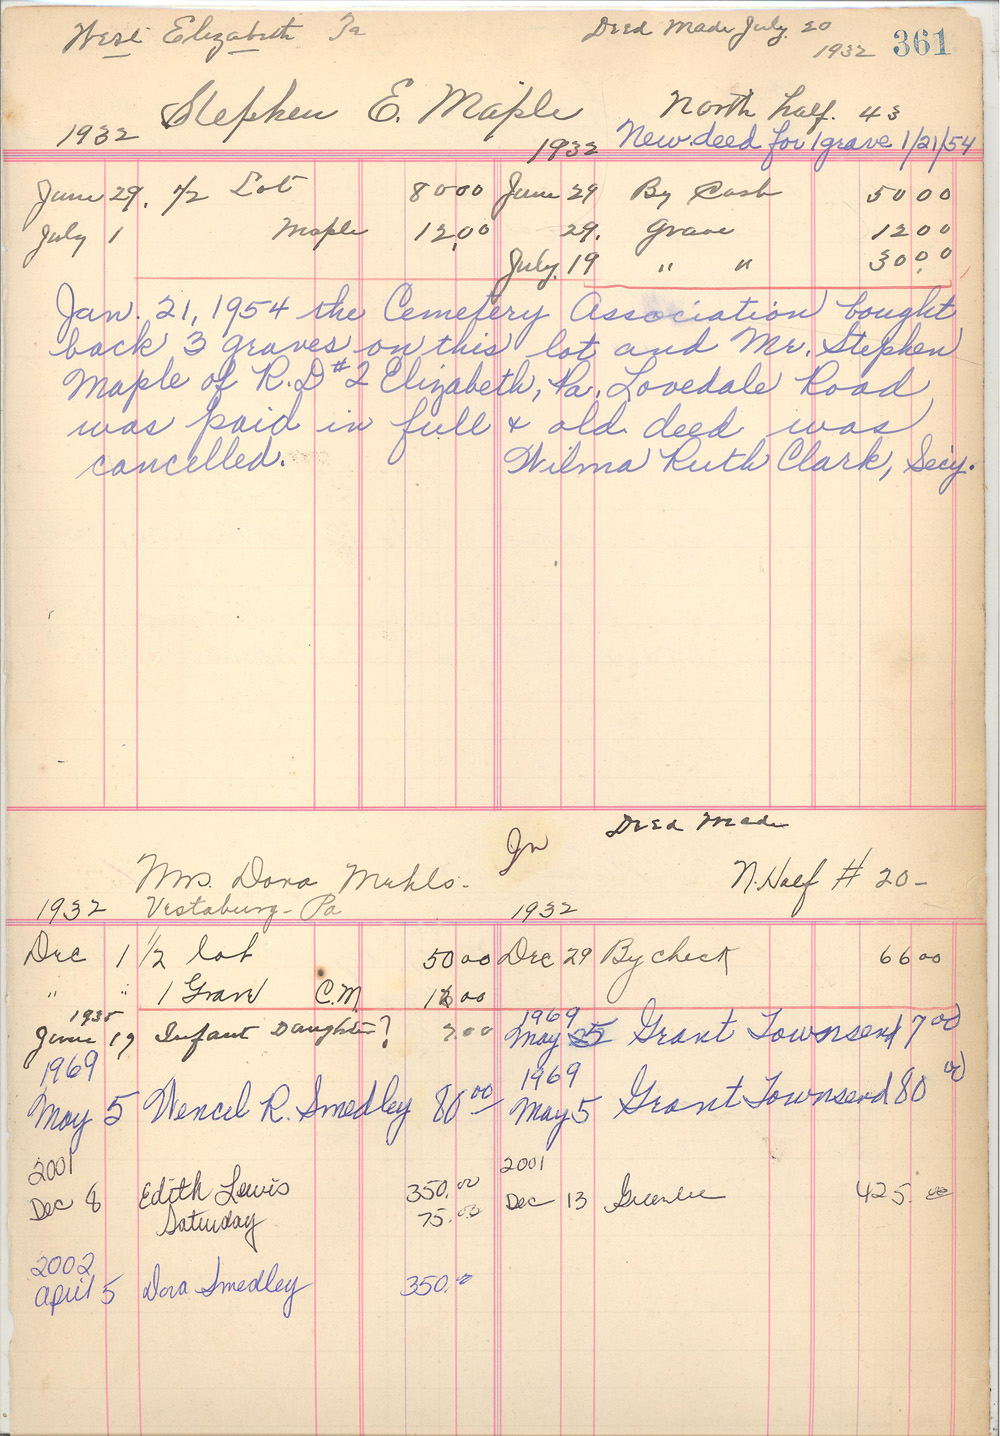 West Elizabeth Pa Deed Made July 20
1932 361
Stephen E. Maple North half. 43
1932 1932 New deed for 1 grave 1/21/54
June 29. 1/2 Lot 80 00 June 29 By Cash 50 00
July 1 Maple 12 00 29. Grave 12 00
July 19 " " 30 00
Jan. 21, 1954 the Cemetery Association bought
back 3 graves on this lot and Mr. Stephen
Maple of R.D #2 Elizabeth, Pa. Lovedale Road
was paid in full & old deed was
cancelled. Wilma Ruth Clark, Secy.
Deed Made
Mrs. Dora Mehls - N. Half # 20 -
1932 Vestaburg - Pa 1932
Dec 1 1/2 lot 50 00 Dec 29 By check 66 00
" " 1 Grave C.M. 00
1935 1969
June 17 Infant Daughter? 7.00 May 5 Grant Townsend 7 00
1969 1969
May 5 Wencel R. Smedley 80 00 May 5 Grant Townsend 80 00
2001 2001
Dec 8 Edith Lewis 350.00 Dec 13 Greenlee 425.00
Saturday 75.00
2002
April 5 Dora Smedley 350.00